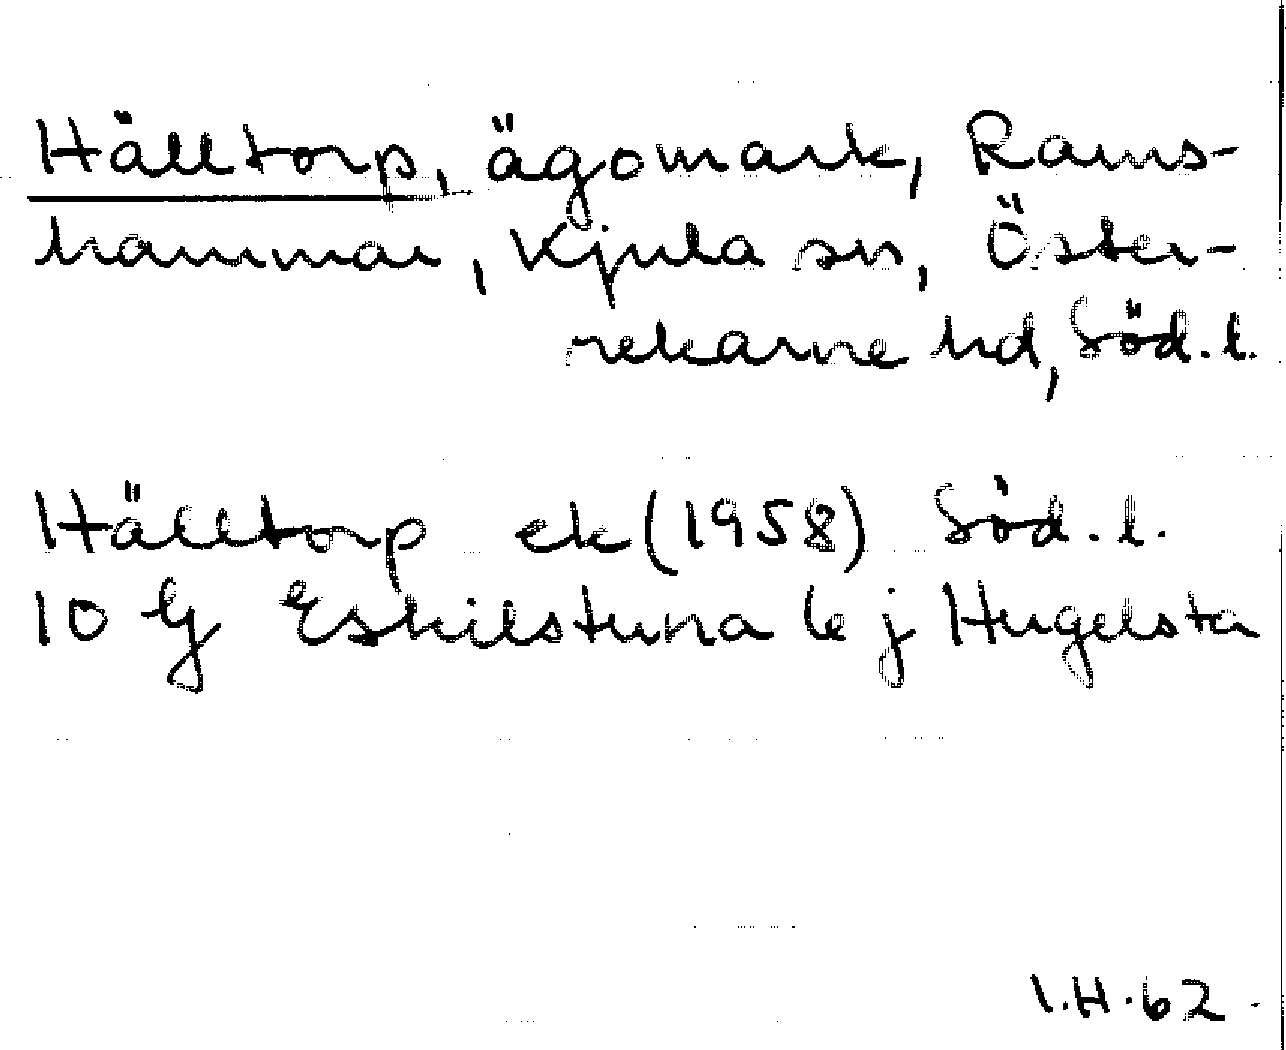 Hälltorp, ägomark, Rams-
hammar, Kjula sn, Öster-
rekarne hd, Söd. l.
Hälltorp ek (1958) Söd. l.
10 G Eskilstuna 6 j Hugelsta
I.H. 62